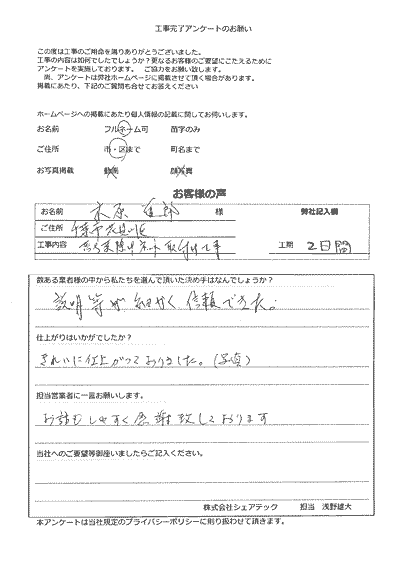 工事完了アンケートのお願い
この度は工事のご用命を賜りありがとうございました。
工事の内容は如何でしたでしょうか？更なるお客様のご要望にこたえるために
アンケートを実施しております。 ご協力をお願い致します。
尚、アンケートは弊社ホームページに掲載させて頂く場合があります。
掲載にあたり、下記のご質問も合せてお答えください
ホームページへの掲載にあたり個人情報の記載に関してお伺いします。
お名前 フルネーム可 苗字のみ
ご住所 市・区まで 町名まで
お写真掲載 動画 顔写真
お客様の声
お名前 様 弊社記入欄
ご住所 千葉市花見川区
工事内容 取付け工事 工期 2日間
数ある業者様の中から私たちを選んで頂いた決め手はなんでしょうか？
説明等が細かく信頼できた。
仕上がりはいかがでしたか？
きれいに仕上がっておりました。(写真)
担当営業者に一言お願いします。
お話もしやすく感謝致しております
当社へのご要望等御座いましたらご記入ください。
株式会社シェアテック 担当 浅野雄大
本アンケートは当社規定のプライバシーポリシーに則り扱わせて頂きます。